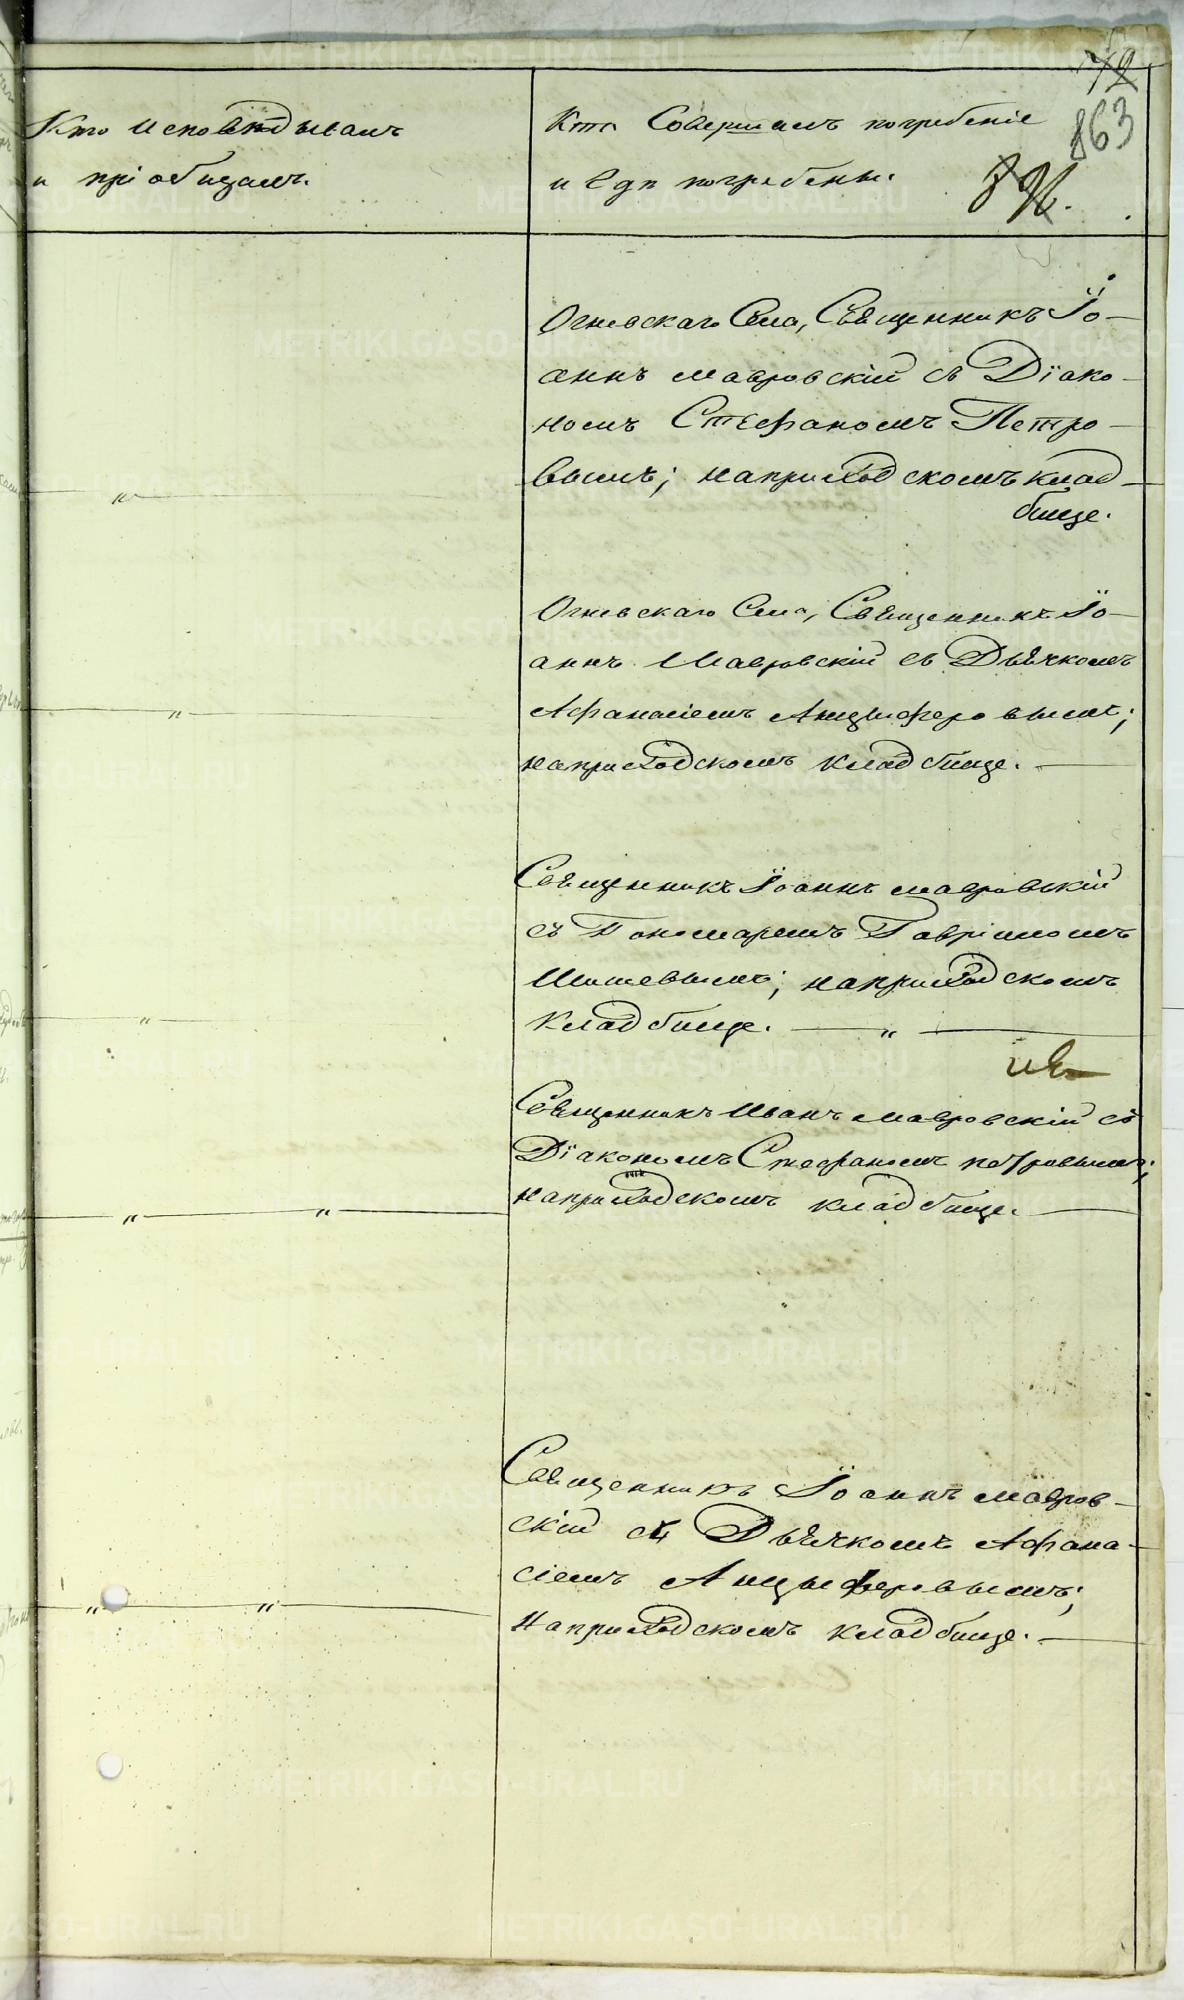 72
863
Кто исповѣдывалъ
и пріобщалъ.
Кто Совершалъ погребеніе
и Гдѣ погребены.
Огневскаго Села, Священникъ Іо-
аннъ Мавровскій съ Діако-
номъ Стефаномъ Петро-
вымъ; наприходскомъ клад-
бище.
Огневскаго Села, Священникъ Іо-
аннъ Мавровскій съ Дьячкомъ
Афанасіемъ Анцыферовымъ;
наприходскомъ кладбище.
Священникъ Іоаннъ Мавровскій
съ Пономаремъ Гавріиломъ
Шишевымъ; наприходскомъ
кладбище. „
Священникъ Иванъ Мавровскій съ
Діакономъ Стефаномъ Петровымъ;
наприходскомъ кладбище.
Священникъ Іоаннъ Мавров-
скій съ Дьячкомъ Афана-
сіемъ Анцыферовымъ;
Наприходскомъ кладбище.
METRIKI.GASO-URAL.RU